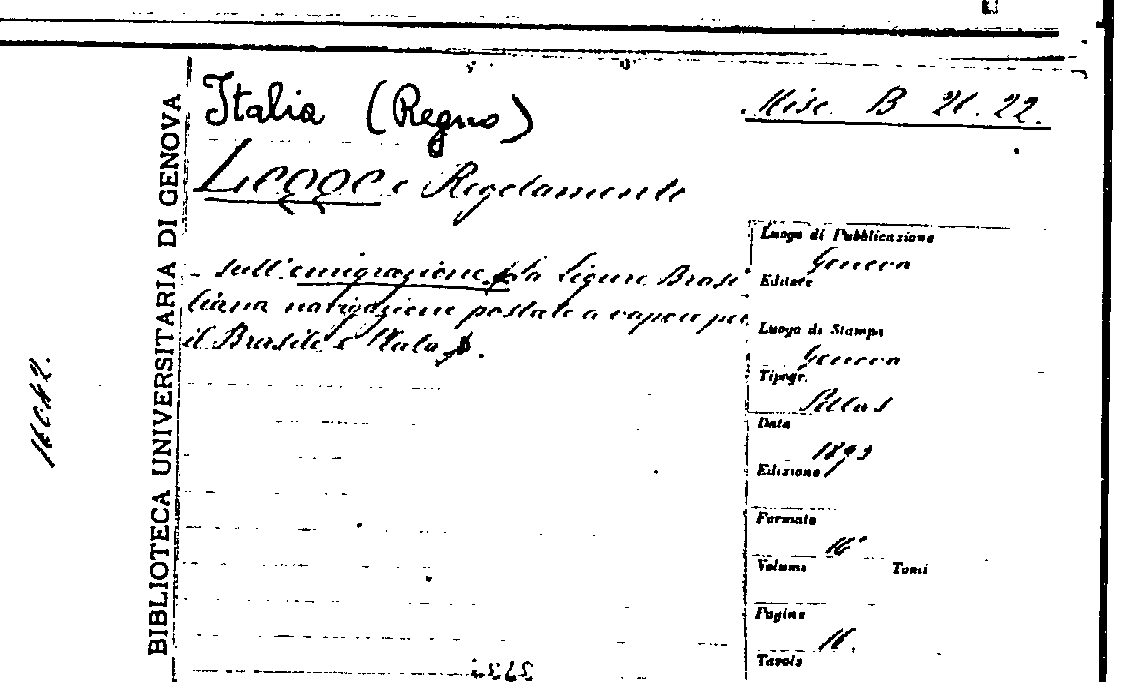 Italia (Regno)
Misc. B 21. 22.
Legge e Regolamento
sull'emigrazione. La Ligure Brasi
liana navigazione postale a vapore per
il Brasile e Plata.
BIBLIOTECA UNIVERSITARIA DI GENOVA
Luogo di Pubblicazione
Genova
Editore
Luogo di Stampa
Genova
Tipogr.
Pellas
Data
1893
Edizione
Formato
16°
Volumi Tomi
Pagine
16.
Tavole